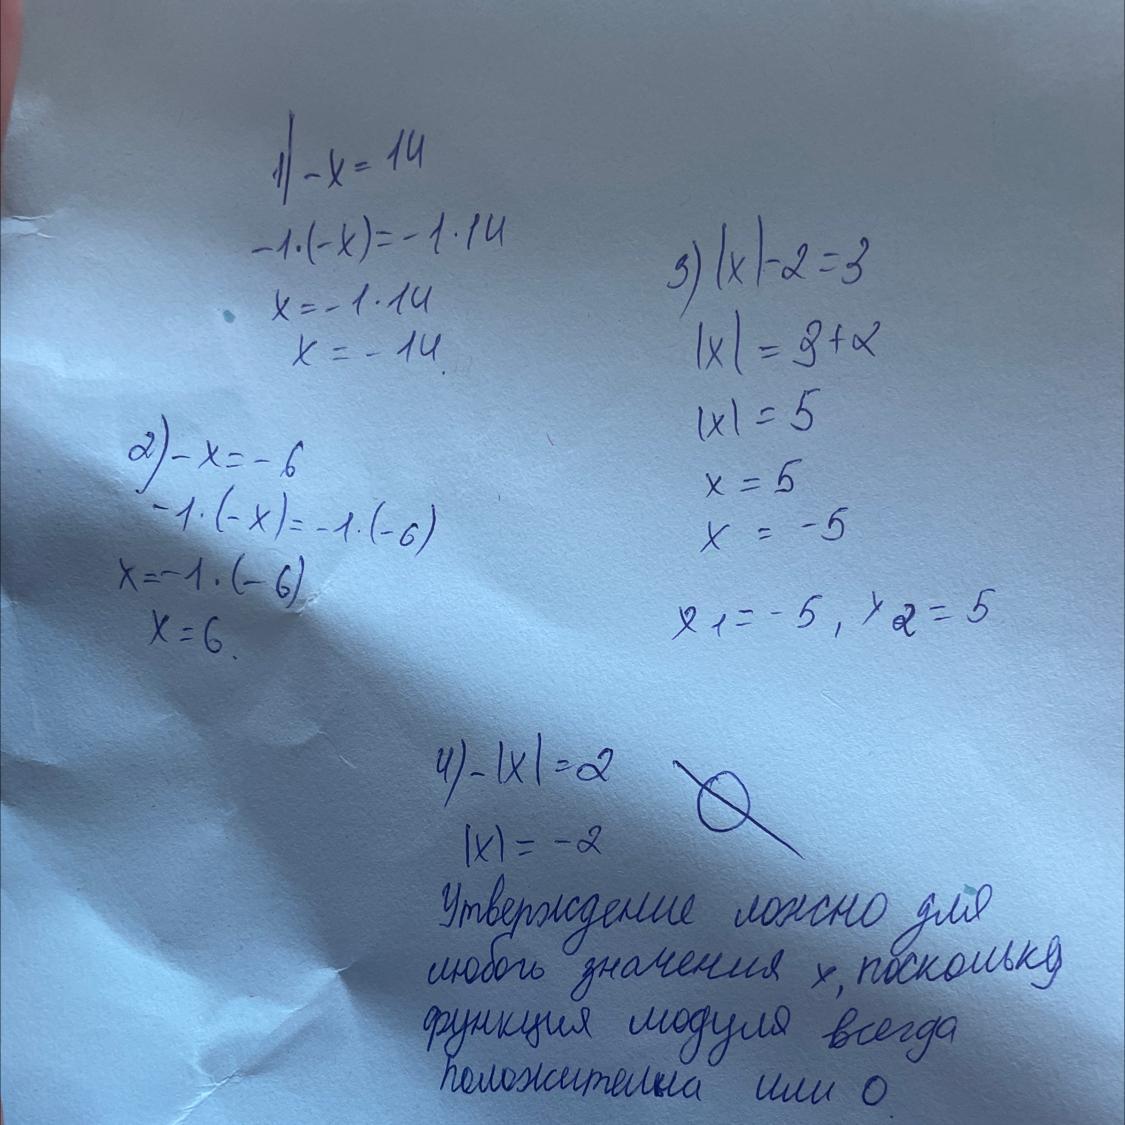 1) -x = 14
-1·(-x) = -1·14
x = -1·14
x = -14.
2) -x = -6
-1·(-x) = -1·(-6)
x = -1·(-6)
x = 6.
3) |x| - 2 = 3
|x| = 3 + 2
|x| = 5
x = 5
x = -5
x1 = -5, x2 = 5
4) -|x| = 2 Ø
|x| = -2
Утверждение ложно для
любого значения x, поскольку
функция модуля всегда
положительна или 0.